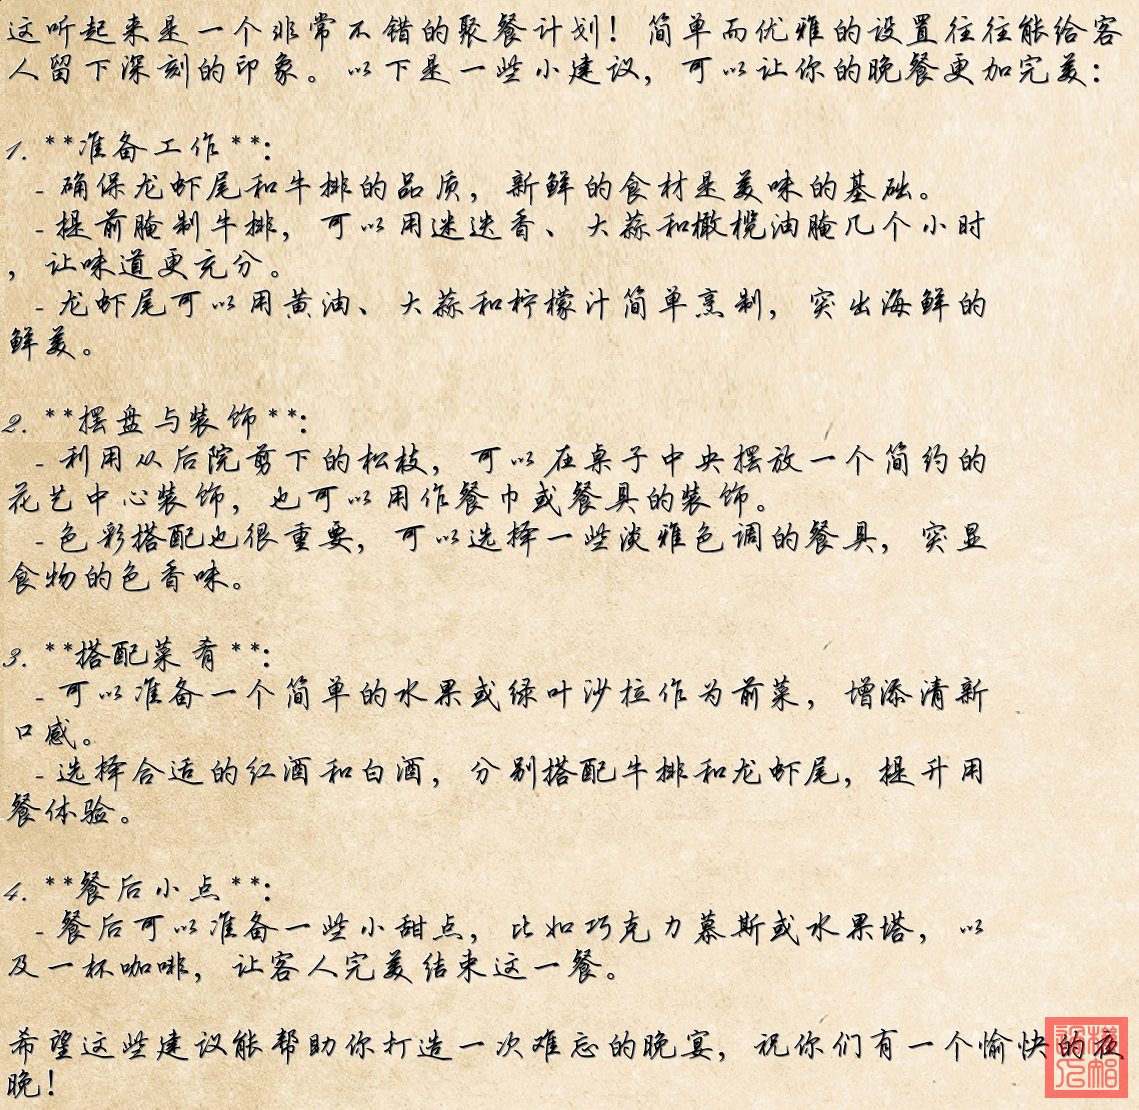 这听起来是一个非常不错的聚餐计划！简单而优雅的设置往往能给客
人留下深刻的印象。以下是一些小建议，可以让你的晚餐更加完美：
1. **准备工作**：
- 确保龙虾尾和牛排的品质，新鲜的食材是美味的基础。
- 提前腌制牛排，可以用迷迭香、大蒜和橄榄油腌几个小时
，让味道更充分。
- 龙虾尾可以用黄油、大蒜和柠檬汁简单烹制，突出海鲜的
鲜美。
2. **摆盘与装饰**：
- 利用从后院剪下的松枝，可以在桌子中央摆放一个简约的
花艺中心装饰，也可以用作餐巾或餐具的装饰。
- 色彩搭配也很重要，可以选择一些淡雅色调的餐具，突显
食物的色香味。
3. **搭配菜肴**：
- 可以准备一个简单的水果或绿叶沙拉作为前菜，增添清新
口感。
- 选择合适的红酒和白酒，分别搭配牛排和龙虾尾，提升用
餐体验。
4. **餐后小点**：
- 餐后可以准备一些小甜点，比如巧克力慕斯或水果塔，以
及一杯咖啡，让客人完美结束这一餐。
希望这些建议能帮助你打造一次难忘的晚宴，祝你们有一个愉快的夜
晚！